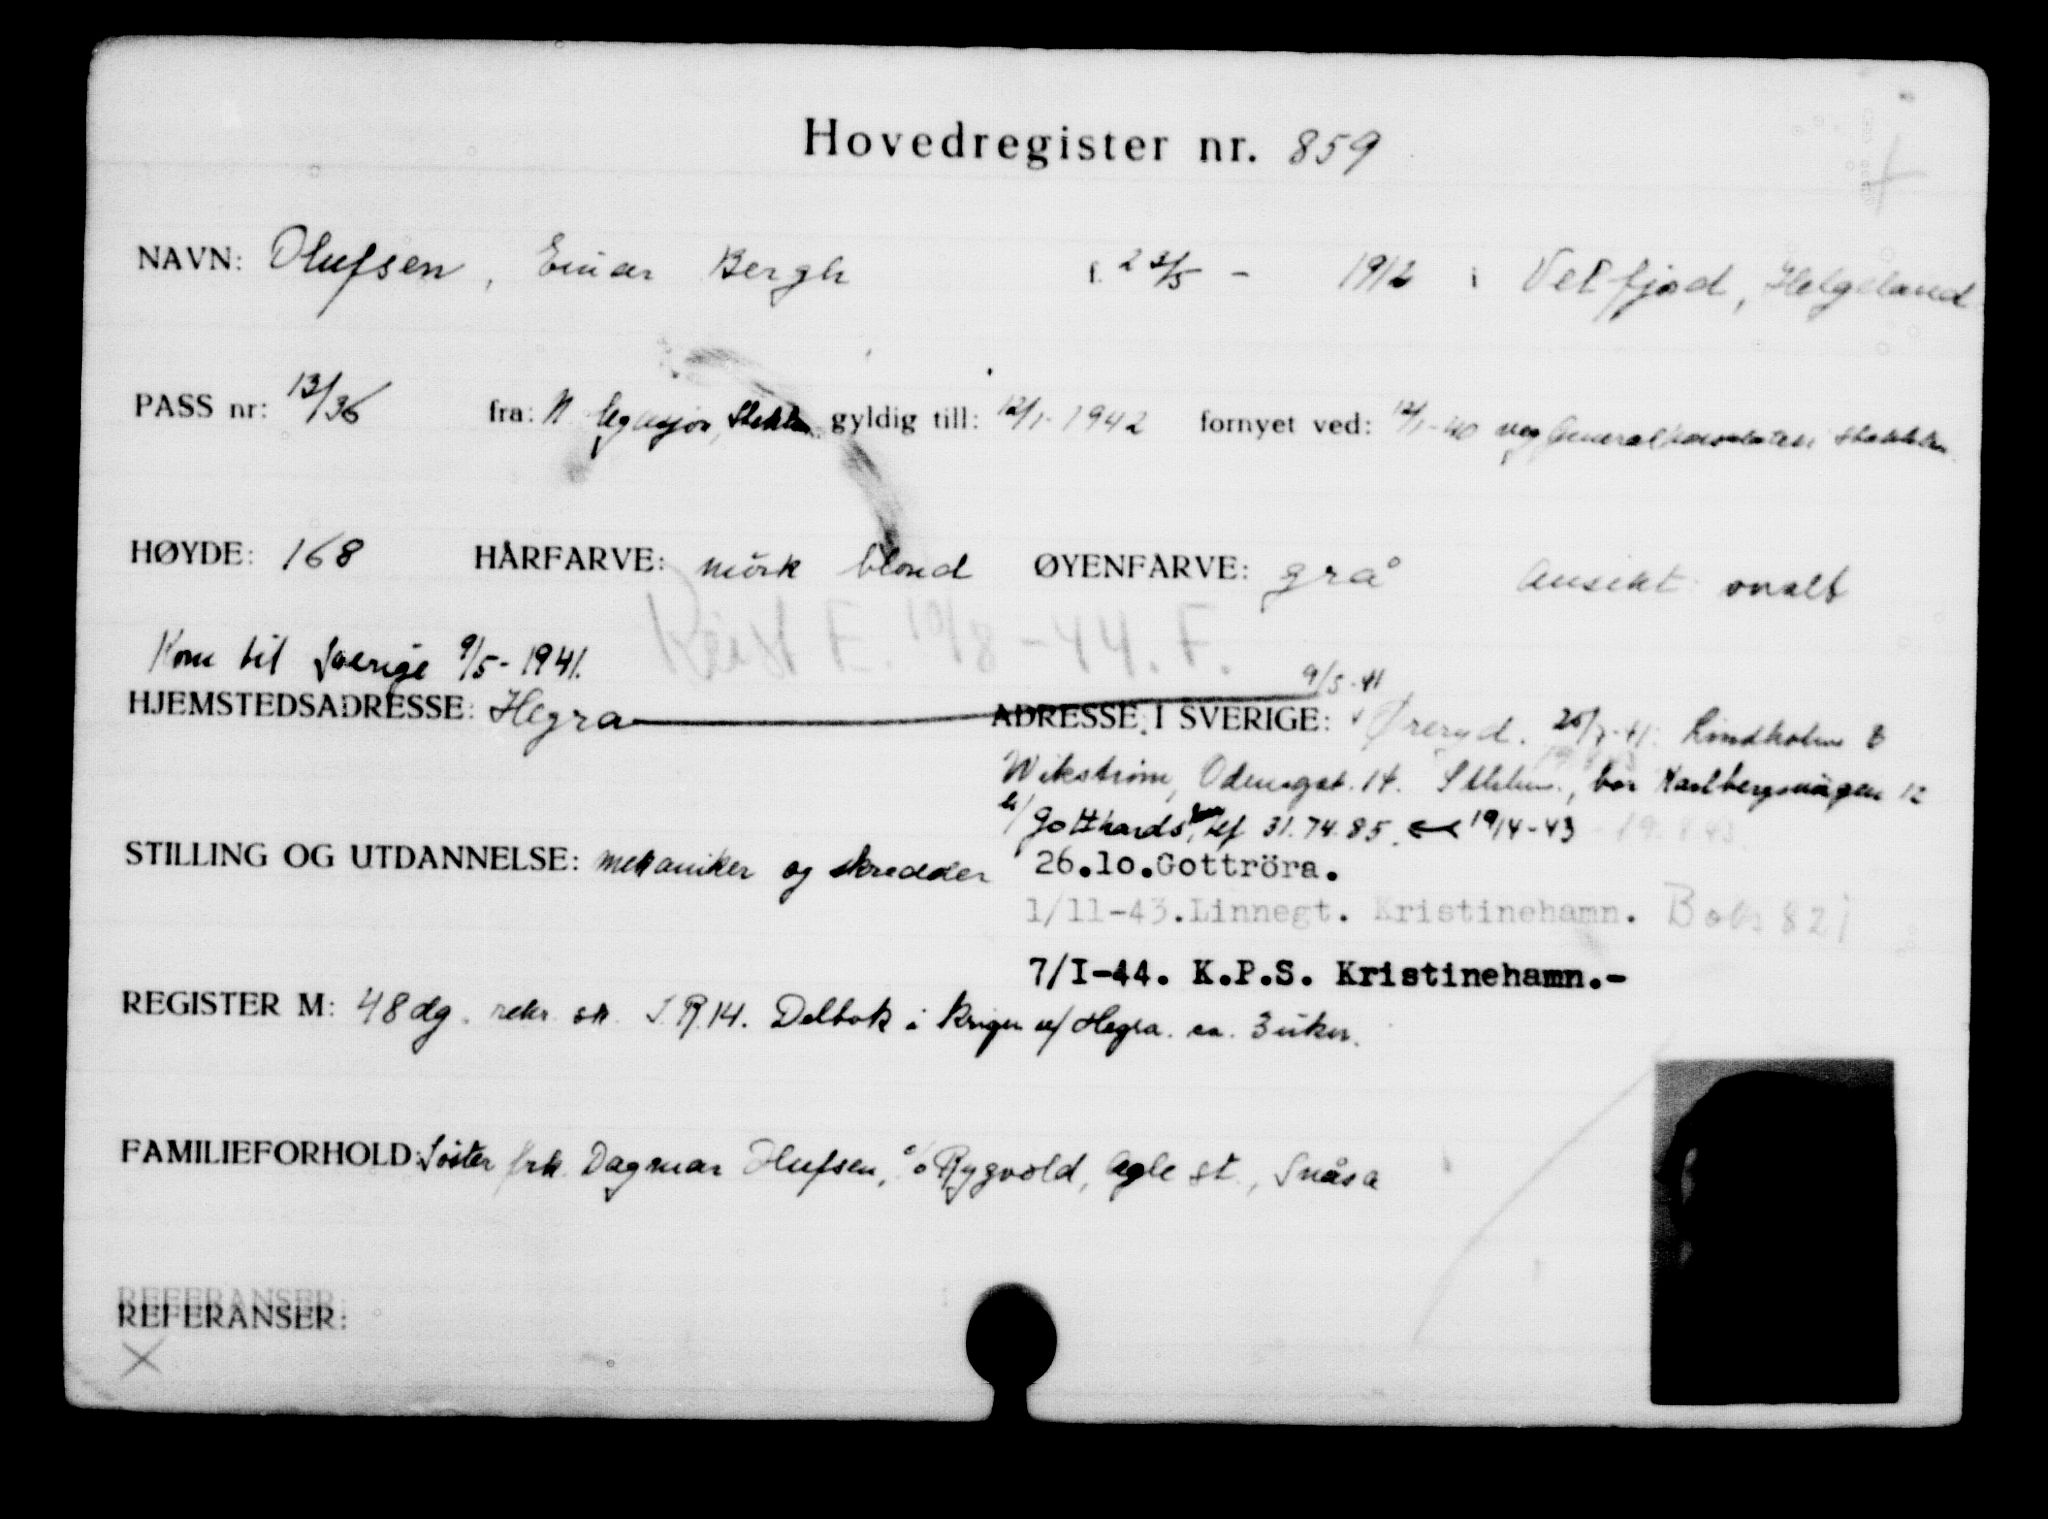 Hovedregister nr. 859
NAVN: Olufsen, Einar Bergh f. 1912 i Velfjord, Helgeland
PASS nr: 13/36 fra: N. legasjon, Stokholm gyldig till: 12/1-1942 fornyet ved: 12/1-40 Generalkonsulatet Stockholm
HØYDE: 168 HÅRFARVE: mörk blond ØYENFARVE: grå Ansikt ovalt
Reist E. 10/8-44. F.
Kom til Sverige 9/5-1941.
9/5-41
HJEMSTEDSADRESSE: Hegra ADRESSE I SVERIGE: Øreryd. Lindholm &
Wikström, Odengat. 14. Sthlm., bor Karlbergsvägen 12
Gotthards, tlf 31.74.85. 19/4-43
STILLING OG UTDANNELSE: mekaniker og skredder
26.10.Gottröra.
1/11-43.Linnegt. Kristinehamn. Boks 827
7/I-44. K.P.S. Kristinehamn.-
REGISTER M: 48 dg. rekr. sk. I.R.14. Deltok i krigen v/ Hegra. ca. 3 uker.
FAMILIEFORHOLD: Søster frk. Dagmar Olufsen, c/o Rygvold, Agle st., Snåsa
REFERANSER:
REFERANSER: